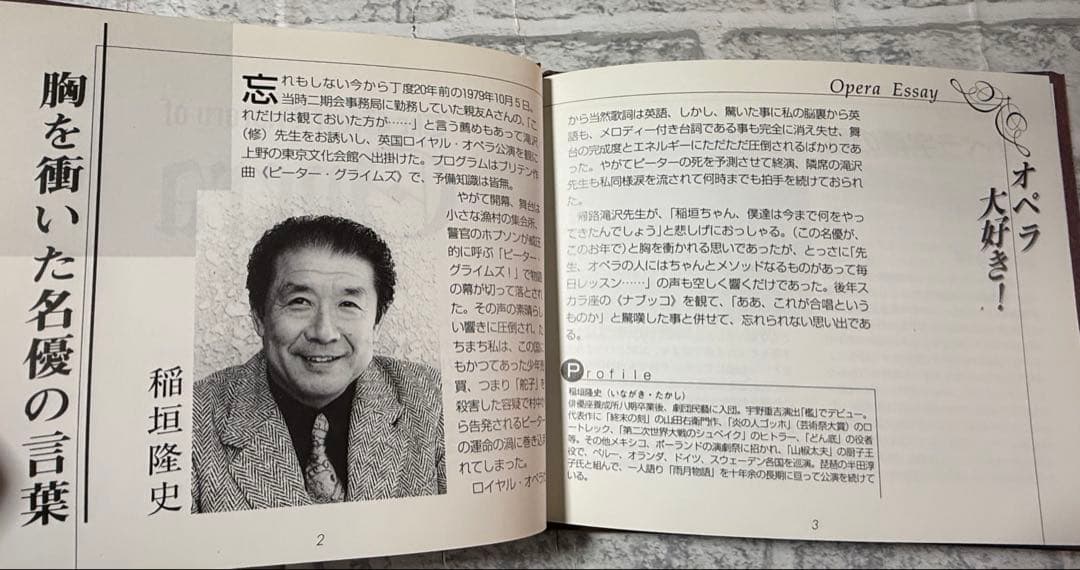 胸を衝いた名優の言葉
稲垣隆史
忘れもしない今から丁度20年前の1979年10月5日、
当時二期会事務局に勤務していた親友Aさんの、「こ
れだけは観ておいた方が……」と言う薦めもあって滝沢
（修）先生をお誘いし、英国ロイヤル・オペラ公演を観に
上野の東京文化会館へ出掛けた。プログラムはブリテン作
曲《ピーター・グライムズ》で、予備知識は皆無。
やがて開幕、舞台は
小さな漁村の集会所、
警官のホブソンが威圧
的に呼ぶ「ピーター・
グライムズ！」で物語
の幕が切って落とされ
た。その声の素晴らし
い響きに圧倒され、た
ちまち私は、この国に
もかつてあった少年売
買、つまり「舵子」を
殺害した容疑で村中か
ら告発されるピーター
の運命の渦に巻き込ま
れてしまった。
ロイヤル・オペラだ
2
Opera Essay
オペラ
大好き！
から当然歌詞は英語、しかし、驚いた事に私の脳裏から英
語も、メロディー付き台詞である事も完全に消え失せ、舞
台の完成度とエネルギーにただただ圧倒されるばかりであ
った。やがてピーターの死を予測させて終演、隣席の滝沢
先生も私同様涙を流されて何時までも拍手を続けておられ
た。
帰路滝沢先生が、「稲垣ちゃん、僕達は今まで何をやっ
てきたんでしょう」と悲しげにおっしゃる。（この名優が、
このお年で）と胸を衝かれる思いであったが、とっさに「先
生、オペラの人にはちゃんとメソッドなるものがあって毎
日レッスン……」の声も空しく響くだけであった。後年ス
カラ座の《ナブッコ》を観て、「ああ、これが合唱という
ものか」と驚嘆した事と併せて、忘れられない思い出であ
る。
Profile
稲垣隆史（いながき・たかし）
俳優座養成所八期卒業後、劇団民藝に入団。宇野重吉演出「檻」でデビュー。
代表作に「終末の刻」の山田右衛門作、「炎の人ゴッホ」（芸術祭大賞）のロ
ートレック、「第二次世界大戦のシュベイク」のヒトラー、「どん底」の役者
等。その他メキシコ、ポーランドの演劇祭に招かれ、「山椒太夫」の厨子王
役で、ペルー、オランダ、ドイツ、スウェーデン各国を巡演。琵琶の半田淳
子氏と組んで、一人語り「雨月物語」を十年余の長期に亘って公演を続けて
いる。
3